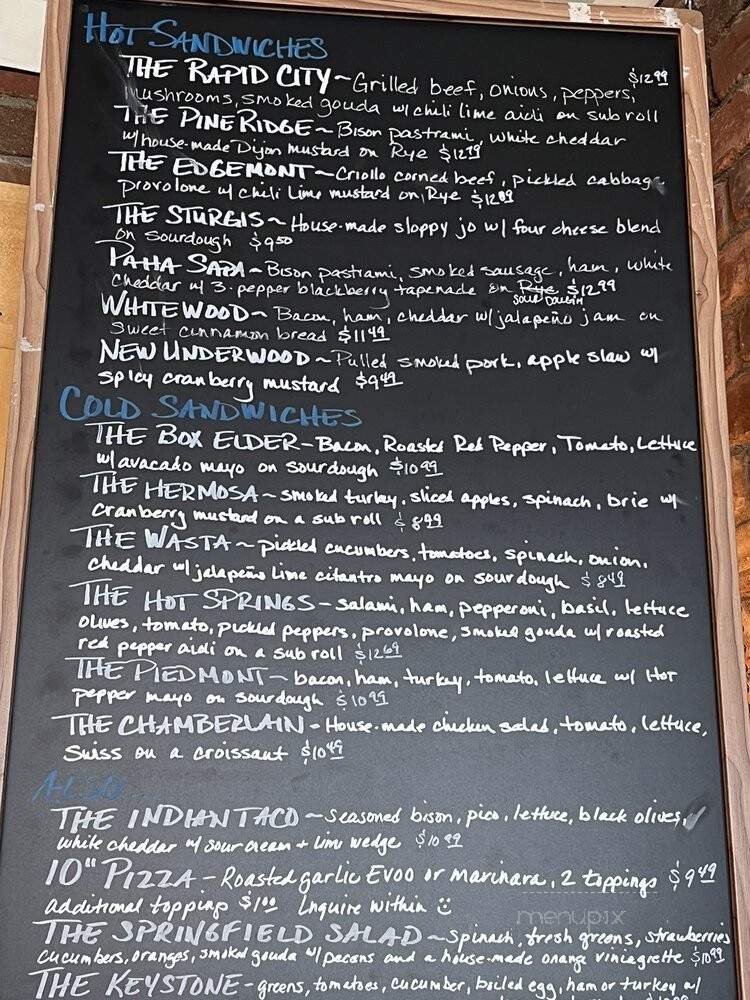 HOT SANDWICHES
THE RAPID CITY ~ Grilled beef, onions, peppers, $12 99
mushrooms, smoked gouda w/ chili lime aioli on sub roll
THE PINE RIDGE ~ Bison pastrami, white cheddar
w/house-made Dijon mustard on Rye $12 79
THE EDGEMONT ~ Criollo corned beef, pickled cabbage
provolone w/ chili Lime mustard on Rye $12 09
THE STURGIS ~ House-made sloppy jo w/ four cheese blend
on sourdough $9 50
PAHA SAPA ~ Bison pastrami, smoked sausage, ham, white
cheddar w/ 3-pepper blackberry tapenade on Rye $12 99
sour dough
WHITEWOOD ~ Bacon, ham, cheddar w/jalapeño jam on
sweet cinnamon bread $11 49
NEW UNDERWOOD ~ Pulled smoked pork, apple slaw w/
spicy cranberry mustard $9 49
COLD SANDWICHES
THE BOX ELDER - Bacon, Roasted Red Pepper, Tomato, Lettuce
w/avacado mayo on sourdough $10 99
THE HERMOSA ~ smoked turkey, sliced apples, spinach, brie w/
cranberry mustard on a sub roll $8 99
THE WASTA ~ pickled cucumbers, tomatoes, spinach, onion,
cheddar w/jalapeño lime cilantro mayo on sourdough $8 49
THE HOT SPRINGS - salami, ham, pepperoni, basil, lettuce
olives, tomato, pickled peppers, provolone, smoked gouda w/ roasted
red pepper aioli on a sub roll $12 69
THE PIEDMONT - bacon, ham, turkey, tomato, lettuce w/ Hot
pepper mayo on sourdough $10 99
THE CHAMBERLAIN - House-made chicken salad, tomato, lettuce,
Swiss on a croissant $10 49
ALSO...
THE INDIAN TACO ~ Seasoned bison, pico, lettuce, black olives,
white cheddar w/ sour cream + lime wedge $10 99
10" PIZZA - Roasted garlic EVOO or marinara, 2 toppings $9 49
additional toppings $1 00 Inquire within
THE SPRINGFIELD SALAD ~ Spinach, fresh greens, strawberries
cucumbers, oranges, smoked gouda w/ pecans and a house-made orange viniagrette $10 99
THE KEYSTONE - greens, tomatoes, cucumber, boiled egg, ham or turkey w/
menupix